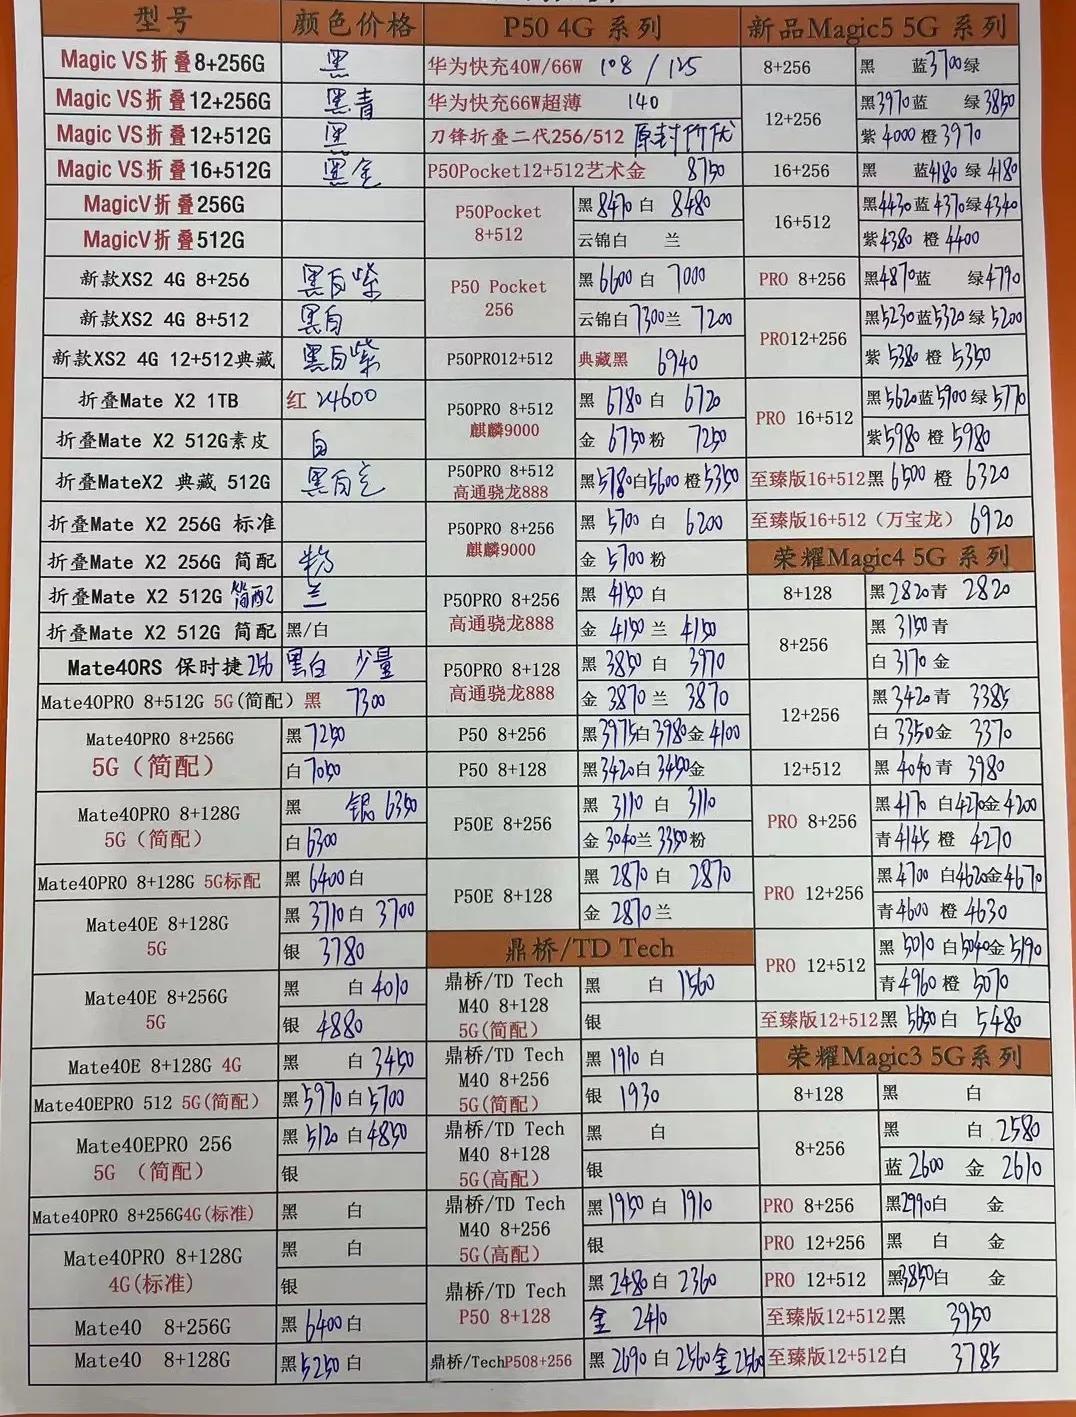 型号 颜色价格 P50 4G 系列 新品Magic5 5G 系列
Magic VS折叠8+256G 黑
Magic VS折叠12+256G 黑青
Magic VS折叠12+512G 黑
Magic VS折叠16+512G 黑金
MagicV折叠256G
MagicV折叠512G
新款XS2 4G 8+256 黑白紫
新款XS2 4G 8+512 黑白
新款XS2 4G 12+512典藏 黑白紫
折叠Mate X2 1TB 红 24600
折叠Mate X2 512G素皮 白
折叠MateX2 典藏 512G 黑白
折叠Mate X2 256G 标准
折叠Mate X2 256G 简配 粉
折叠Mate X2 512G 简配2 兰
折叠Mate X2 512G 简配 黑/白
Mate40RS 保时捷256 黑白 少量
Mate40PRO 8+512G 5G(简配) 黑 7300
Mate40PRO 8+256G
5G(简配)
黑7250
白7050
Mate40PRO 8+128G
5G(简配)
黑 银 6350
白6300
Mate40PRO 8+128G 5G标配 黑 6400白
Mate40E 8+128G
5G
黑 3710白 3700
银 3780
Mate40E 8+256G
5G
黑 白4010
银 4880
Mate40E 8+128G 4G 黑 白3450
Mate40EPRO 512 5G(简配) 黑5970白5700
Mate40EPRO 256
5G (简配)
黑5120 白4850
银
Mate40PRO 8+256G4G(标准) 黑 白
Mate40PRO 8+128G
4G(标准)
黑 白
银
Mate40 8+256G 黑6400白
Mate40 8+128G 黑5250白
华为快充40W/66W 108 / 125
华为快充66W超薄 140
刀锋折叠二代256/512 原封价优
P50Pocket12+512艺术金 8750
P50Pocket
8+512
黑8470白 8480
云锦白 兰
P50 Pocket
256
黑6600白 7000
云锦白7300兰 7200
P50PRO12+512 典藏黑 6940
P50PRO 8+512
麒麟9000
黑 6780白 6720
金 6750粉 7250
P50PRO 8+512
高通骁龙888
黑5780白5600橙5350
P50PRO 8+256
麒麟9000
黑 5700 白 6200
金 5700粉
P50PRO 8+256
高通骁龙888
黑 4150白
金 4150兰 4150
P50PRO 8+128
高通骁龙888
黑 3850 白 3970
金 3870兰 3870
P50 8+256 黑3975白3980金4100
P50 8+128 黑3420白3450金
P50E 8+256
黑 3110 白 3110
金 3040兰3350粉
P50E 8+128
黑 2870白 2870
金 2870兰
鼎桥/TD Tech
鼎桥/TD Tech
M40 8+128
5G(简配)
黑 白1560
银
鼎桥/TD Tech
M40 8+256
5G(简配)
黑 1910白
银 1930
鼎桥/TD Tech
M40 8+128
5G(高配)
黑 白
银
鼎桥/TD Tech
M40 8+256
5G(高配)
黑1950白 1910
银
鼎桥/TD Tech
P50 8+128
黑 2480白 2360
金 2410
鼎桥/TechP508+256 黑 2690白2560金2560
8+256 黑 蓝3700绿
12+256
黑3970蓝 绿3850
紫4000橙3970
16+256 黑 蓝4180绿4180
16+512
黑4430蓝4370绿4340
紫4380 橙4400
PRO 8+256 黑4870蓝 绿4790
PRO12+256
黑5230蓝5320绿5200
紫 5380 橙 5350
PRO 16+512
黑5620蓝5900绿5770
紫5980 橙 5980
至臻版16+512黑 6500 橙 6320
至臻版16+512(万宝龙) 6920
荣耀Magic4 5G 系列
8+128 黑2820青 2820
8+256
黑 3150青
白 3170金
12+256
黑 3420青 3385
白 3350金 3370
12+512 黑 4040青 3980
PRO 8+256
黑4170 白4270金4200
青4145 橙 4270
PRO 12+256
黑4700 白4620金4670
青4600 橙 4630
PRO 12+512
黑 5010 白5040金5190
青4960 橙 5070
至臻版12+512黑 5650白 5480
荣耀Magic3 5G系列
8+128 黑 白
8+256
黑 白 2580
蓝 2600 金 2610
PRO 8+256 黑2990白 金
PRO 12+256 黑 白 金
PRO 12+512 黑3850白 金
至臻版12+512黑 3950
至臻版12+512白 3785